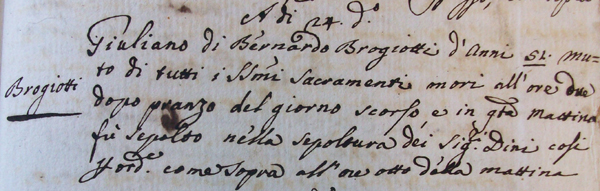 A di 24. d.º
Giuliano di Bernardo Brogiotti d'Anni 51. mu-
Brogiotti
to di tutti i SSmi Sacramenti morì all'ore due
dopo pranzo del giorno scorso, e in qta mattina
fù sepolto nella sepoltura dei Sig.i Dini così
come sopra all'ore otto della mattina